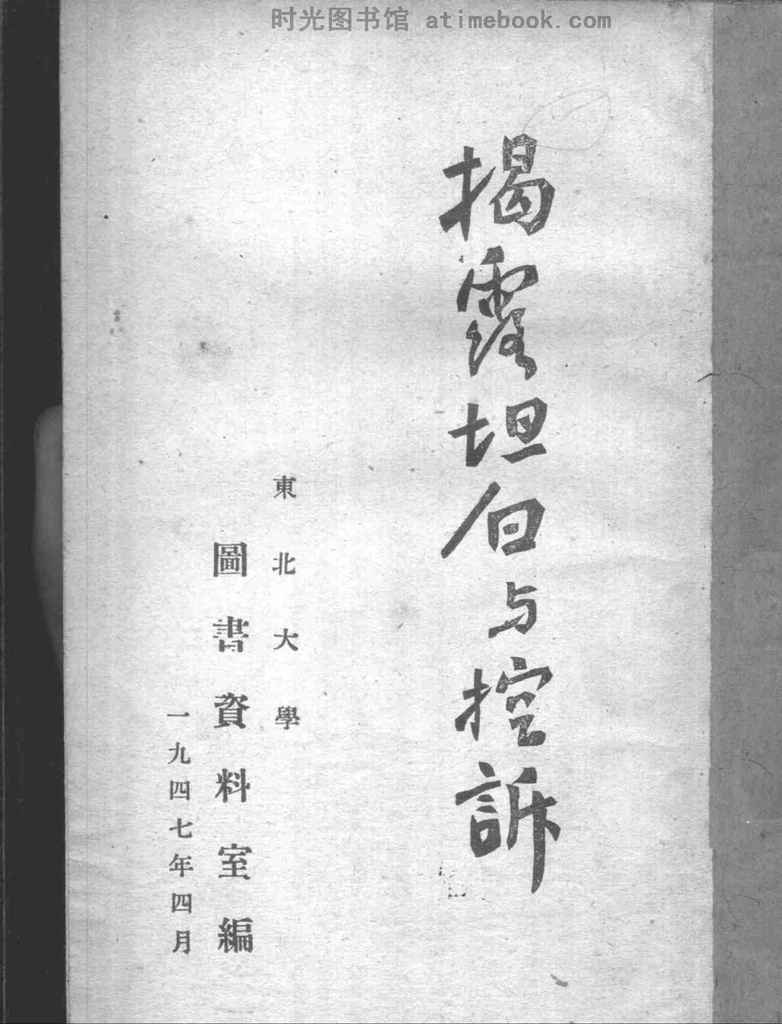 时光图书馆 atimebook.com
揭露坦白与控訴
東北大學
圖書資料室編
一九四七年四月